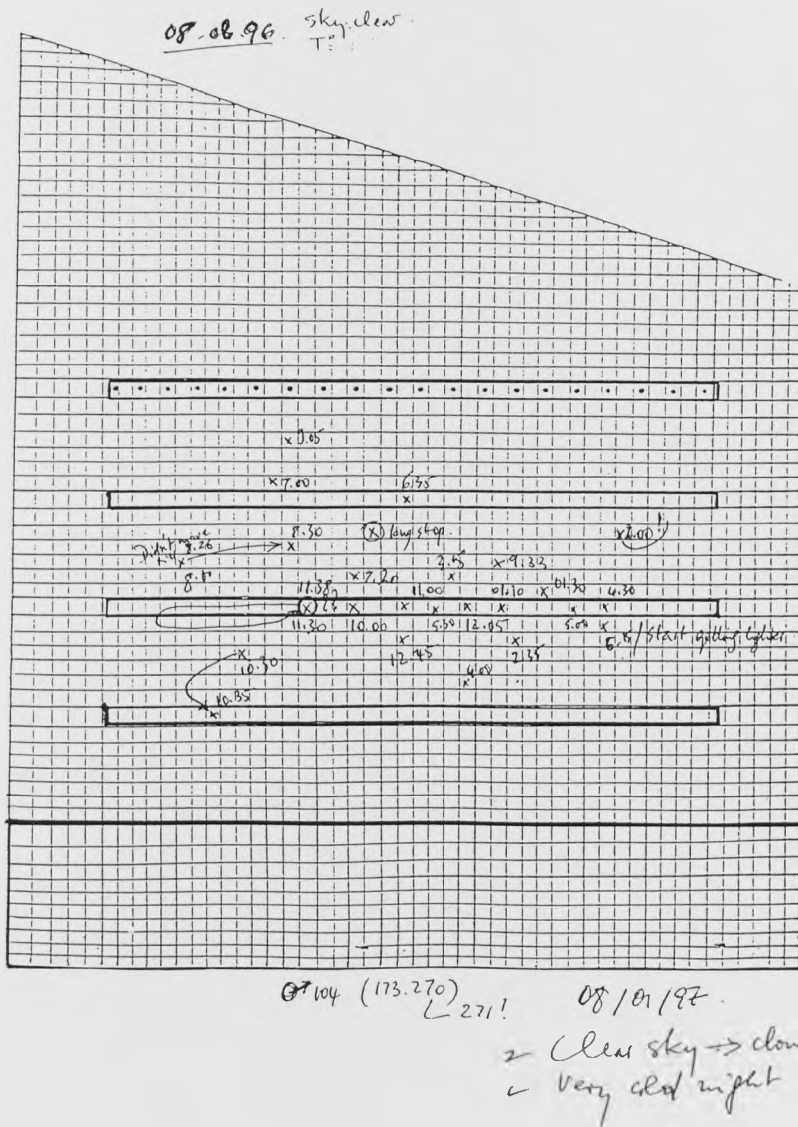 08-08-96. sky clear
T°:
x 9.05
x 7.00
6.35
Didn't move
till 8.26
8.30
(x) long stop.
x 9.33
x 7.20
11.38
11.00
01.10
01.30
4.30
11.30
10.00
5.30
12.05
5.00
/ Start getting lighter
10.30
12.45
2.35
4.00
10.35
104 (173.270)
271!
08/01/97.
Clear sky →
Very cold night